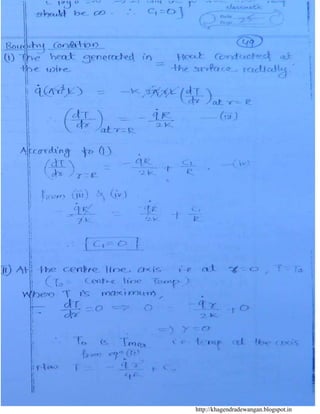 classmate
Date
Page
should be ∞. ∴ C₁=0]
49
Boundary Condition
(i) The heat generated in = Heat Conducted at
the wire the surface radially.
q̇(πR²K) = -K. 2πRK (dT/dr) at r=R
∴ (dT/dr) at r=R = - q̇R/2K — (iii)
According to (1)
(dT/dr) r=R = - q̇R/2K + C₁/R — (iv)
from (iii) & (iv)
- q̇R/2K = - q̇R/2K + C₁/R
∴ [C₁=0]
(ii) At the centre line axis i.e at r=0, T=T₀
(T₀ = Centre line Temp.)
Where T is maximum,
∴ dT/dr = 0 => 0 = - q̇r/2K + 0
=> r=0
∴ T₀ is Tmax i.e temp at the axis
from eqⁿ
Now T = - q̇r²/4K + C₂
http://khagendradewangan.blogspot.in